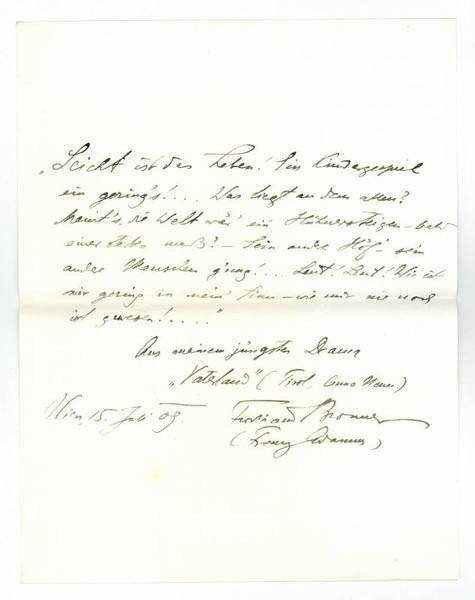 „Leicht ist das Leben! Ein Kindergespiel
ein gering's!.... Was liegt an dem allen?
Meint's, die Welt wär' ein
eines leben muß? – Sein andre Höf' – sein
andre Menschen g'nug!... Leut'! Leut'! Wie ist
mir gering in mein' Sinn – wie mir nie noch
ist gewesen!....."
Aus meinem jüngsten Drama
„Vaterland" (Tirol, Anno Neun)
Wien, 15. Juli 09. Ferdinand Bronner
(Franz Adamus)